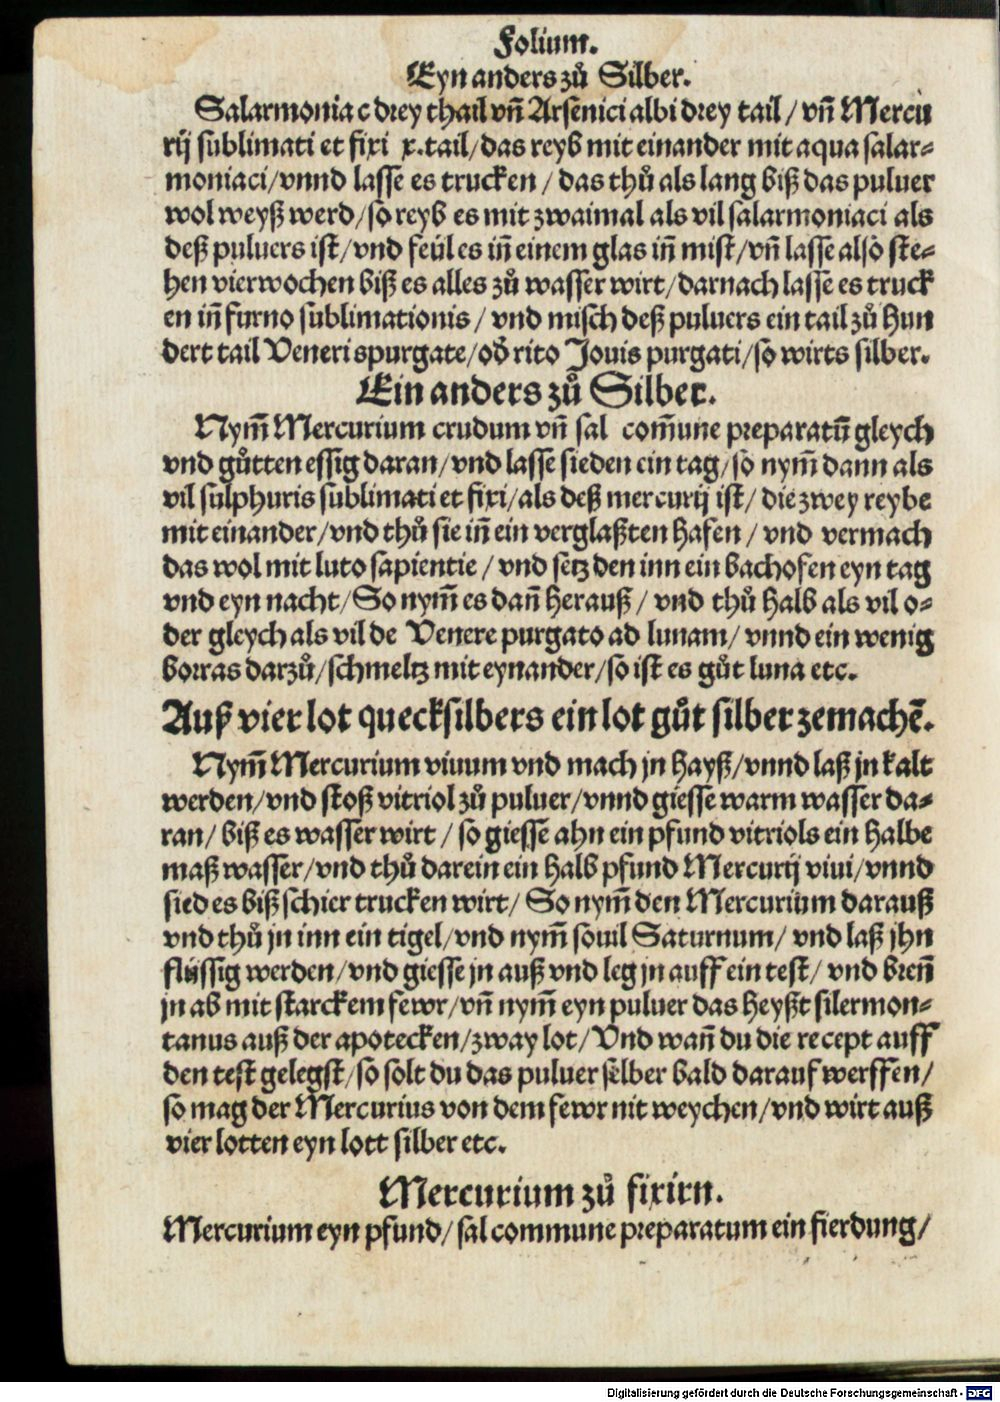 Folium.
Eyn anders zů Silber.
Salarmoniac drey thail vñ Arsenici albi drey tail / vñ Mercu
rij sublimati et fixi x.tail/das reyb mit einander mit aqua salar⸗
moniaci/vnnd lasse es trucken / das thů als lang biß das puluer
wol weyß werd/so reyb es mit zwaimal als vil salarmoniaci als
deß puluers ist/vnd feül es iñ einem glas iñ mist/vñ lasse also ste⸗
hen vierwochen biß es alles zů wasser wirt/darnach lasse es truck
en iñ furno sublimationis / vnd misch deß puluers ein tail zů Hun
dert tail Veneris purgate/od̕ rito Jouis purgati/so wirts silber.
Ein anders zů Silber.
Nym̃ Mercurium crudum vñ sal com̃une preparatũ gleych
vnd gůtten essig daran/vnd lasse sieden ein tag/so nym̃ dann als
vil sulphuris sublimati et fixi/als deß mercurij ist/die zwey reybe
mit einander/vnd thů sie iñ ein verglaßten hafen / vnd vermach
das wol mit luto sapientie / vnd setz den inn ein bachofen eyn tag
vnd eyn nacht/So nym̃ es dañ herauß / vnd thů halb als vil o⸗
der gleych als vil de Venere purgato ad lunam/ vnnd ein wenig
borras darzů/schmeltz mit eynander/so ist es gůt luna etc.
Auß vier lot quecksilbers ein lot gůt silber zemachẽ.
Nym̃ Mercurium viuum vnd mach jn hayß/vnnd laß jn kalt
werden/vnd stoß vitriol zů puluer/vnnd giesse warm wasser da⸗
ran/ biß es wasser wirt / so giesse ahn ein pfund vitriols ein halbe
maß wasser/vnd thů darein ein halb pfund Mercurij viui/vnnd
sied es biß schier trucken wirt/ So nym̃ den Mercurium darauß
vnd thů jn inn ein tigel/vnd nym̃ souil Saturnum/ vnd laß jhn
flüssig werden/vnd giesse jn auß vnd leg jn auff ein test/ vnd breñ
jn ab mit starckem fewr/vñ nym̃ eyn puluer das heyßt silermon⸗
tanus auß der apotecken/zway lot/Vnd wañ du die recept auff
den test gelegst/so solt du das puluer selber bald darauf werffen/
so mag der Mercurius von dem fewr nit weychen/vnd wirt auß
vier lotten eyn lott silber etc.
Mercurium zů fixirn.
Mercurium eyn pfund/sal commune preparatum ein fierdung/
Digitalisierung gefördert durch die Deutsche Forschungsgemeinschaft - DFG